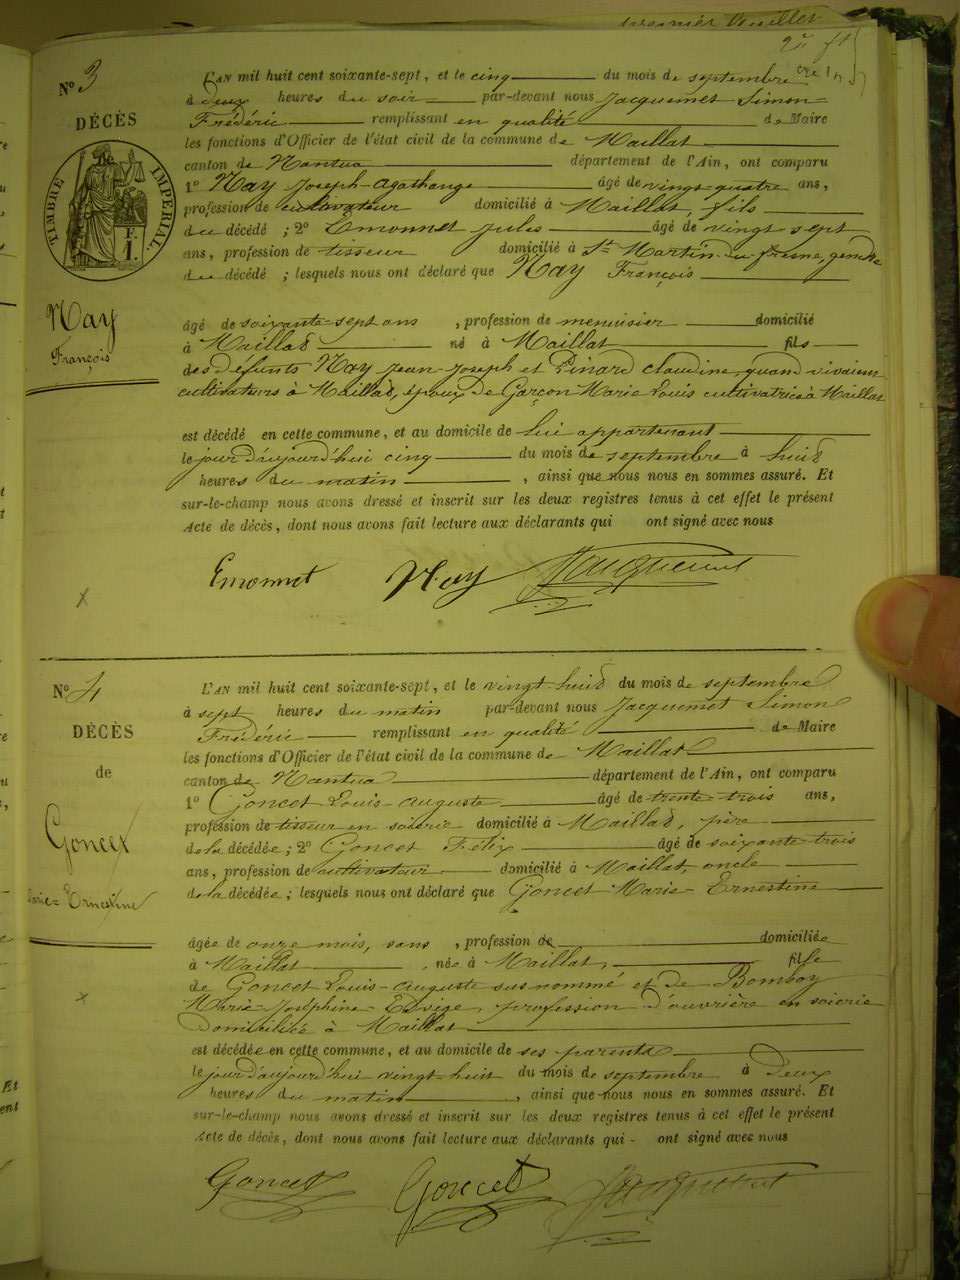 premier feuillet
2e ft
N° 3
DÉCÈS
TIMBRE IMPÉRIAL
F. 1.
Nay
François
L'AN mil huit cent soixante-sept, et le cinq du mois de septembre
à deux heures du soir par-devant nous Jacquemet Simon-
Frédéric remplissant en qualité de Maire
les fonctions d'Officier de l'état civil de la commune de Maillat
canton de Nantua département de l'Ain, ont comparu
1° Nay Joseph-Agathange âgé de vingt-quatre ans,
profession de cultivateur domicilié à Maillat, fils
du décédé ; 2° Emonnet Jules âgé de vingt sept
ans, profession de tisseur domicilié à St Martin du fresne, gendre
du décédé ; lesquels nous ont déclaré que Nay François
âgé de soixante-sept ans , profession de menuisier domicilié
à Maillat né à Maillat fils
des défunts Nay Jean-Joseph et Pinard claudine, quand vivaient
cultivateurs à Maillat, époux de Garçon Marie Louis cultivatrice à Maillat
est décédé en cette commune, et au domicile de lui appartenant
le jour d'aujourd'hui cinq du mois de septembre à huit
heures du matin , ainsi que nous nous en sommes assuré. Et
sur-le-champ nous avons dressé et inscrit sur les deux registres tenus à cet effet le présent
Acte de décès, dont nous avons fait lecture aux déclarants qui ont signé avec nous
Emonnet Nay Jacquemet
N° 4
DÉCÈS
de
Goncet
Marie-Ernestine
L'AN mil huit cent soixante-sept, et le vingt-huit du mois de septembre
à sept heures du matin par-devant nous Jacquemet Simon
Frédéric remplissant en qualité de Maire
les fonctions d'Officier de l'état civil de la commune de Maillat
canton de Nantua département de l'Ain, ont comparu
1° Goncet Louis-auguste âgé de trente-trois ans,
profession de tisseur en soierie domicilié à Maillat, père
de la décédée ; 2° Goncet Félix âgé de soixante-trois
ans, profession de cultivateur domicilié à Maillat, oncle
de la décédée ; lesquels nous ont déclaré que Goncet Marie-Ernestine
âgée de onze mois, sans , profession de domiciliée
à Maillat , née à Maillat, fille
de Goncet Louis-auguste susnommé et de Bomboy
Marie-Joséphine-Edvige, profession d'ouvrière en soierie
domiciliée à Maillat
est décédée en cette commune, et au domicile de ses parents
le jour d'aujourd'hui vingt-huit du mois de septembre à deux
heures du matin , ainsi que nous nous en sommes assuré. Et
sur-le-champ nous avons dressé et inscrit sur les deux registres tenus à cet effet le présent
Acte de décès, dont nous avons fait lecture aux déclarants qui - ont signé avec nous
Goncet Goncet Jacquemet